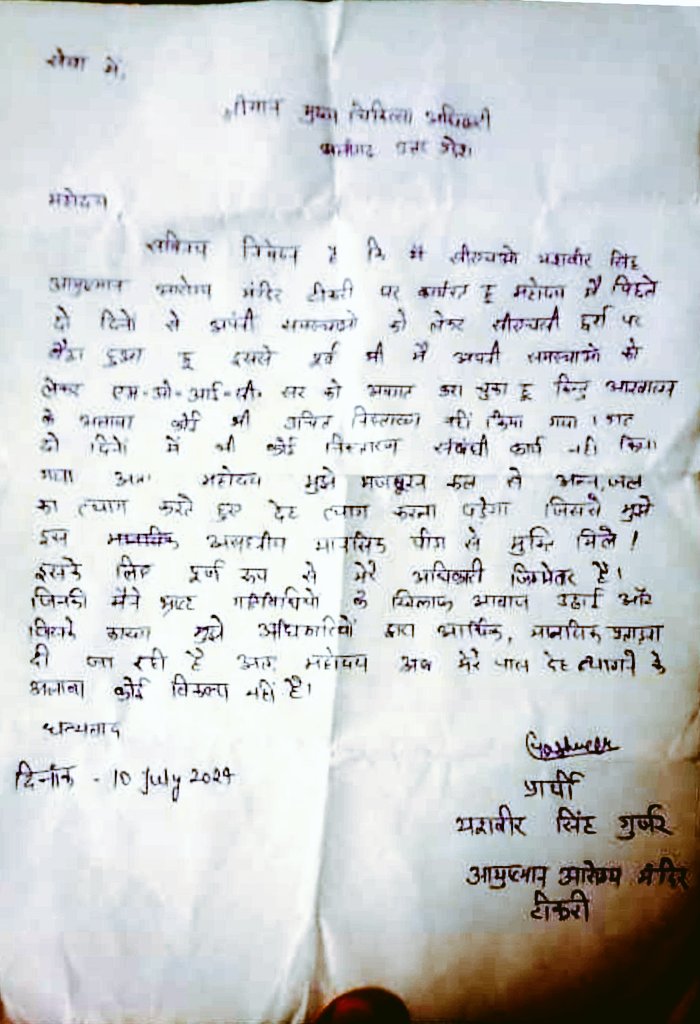 सेवा में,
श्रीमान मुख्य चिकित्सा अधिकारी
अलीगढ़ उत्तर प्रदेश
महोदय,
सविनय निवेदन है कि मैं सीएचओ यशवीर सिंह
आयुष्मान आरोग्य मंदिर टीकरी पर कार्यरत हू महोदय मैं पिछले
दो दिनों से अपनी समस्याओ को लेकर सीएचसी पर
बैठा हुआ हू इससे पूर्व भी मैं अपनी समस्याओ को
लेकर एम-ओ-आई-सी- सर को अवगत करा चुका हू किन्तु आश्वासन
के अलावा कोई भी उचित निस्तारण नहीं किया गया । गत
दो दिनों में भी कोई निस्तारण संबंधी कार्य नहीं किया
गया अतः महोदय मुझे मजबूरन कल से अन्न, जल
का त्याग करते हुए देह त्याग करना पड़ेगा जिससे मुझे
इस असहनीय मानसिक पीड़ा से मुक्ति मिले !
इसके लिए पूर्ण रूप से मेरे अधिकारी जिम्मेवर है।
जिनकी मैंने भ्रष्ट गतिविधियो के खिलाफ आवाज उठाई और
जिसके कारण मुझे अधिकारियों द्वारा आर्थिक, मानसिक प्रताड़ना
दी जा रही है अतः महोदय अब मेरे पास देह त्यागने के
अलावा कोई विकल्प नहीं है।
धन्यवाद
दिनाँक - 10 July 2024
Yashveer
प्रार्थी
यशवीर सिंह गुर्जर
आयुष्मान आरोग्य मंदिर
टीकरी